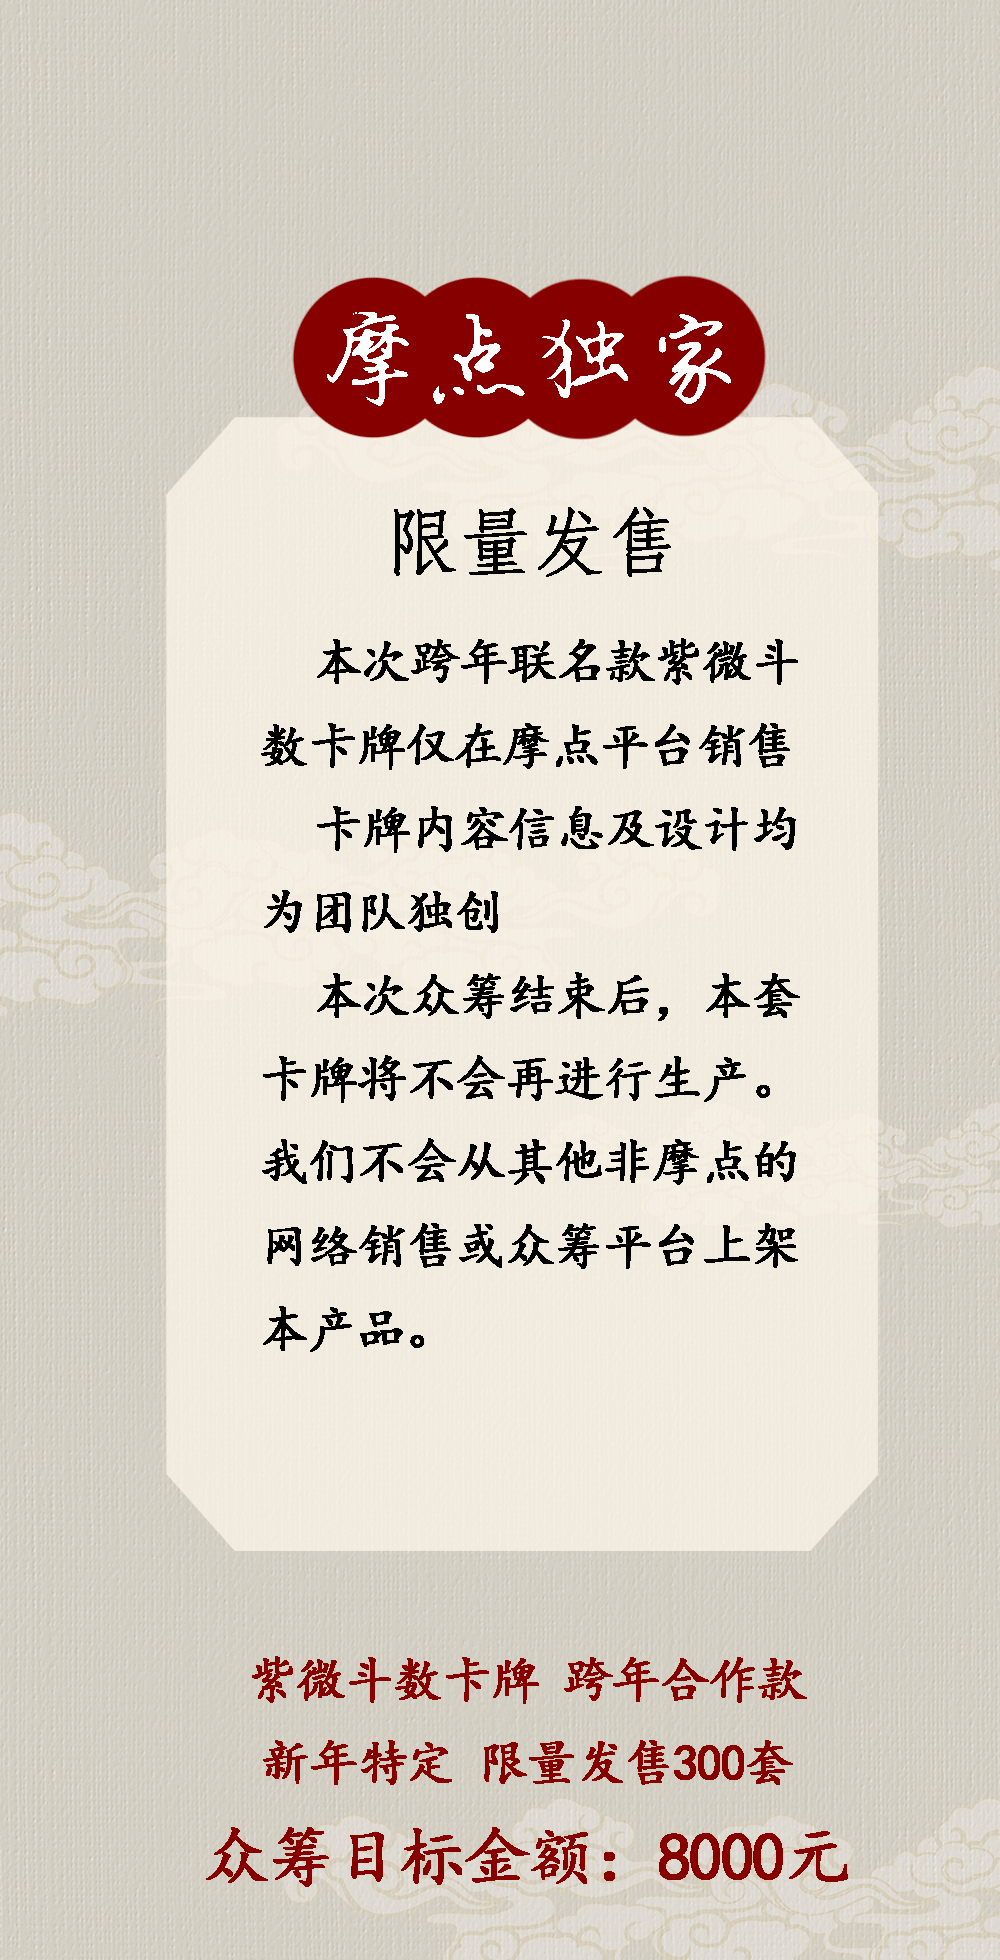 摩点独家
限量发售
本次跨年联名款紫微斗
数卡牌仅在摩点平台销售
卡牌内容信息及设计均
为团队独创
本次众筹结束后，本套
卡牌将不会再进行生产。
我们不会从其他非摩点的
网络销售或众筹平台上架
本产品。
紫微斗数卡牌 跨年合作款
新年特定 限量发售300套
众筹目标金额：8000元